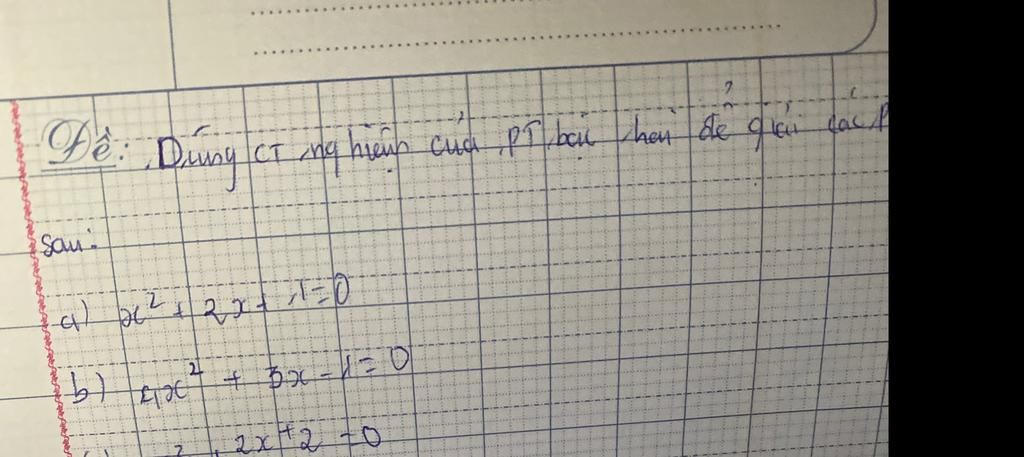 Đề: Dùng CT nghiệm của PT bậc hai để giải các P
sau:
a) x² + 2x + 1 = 0
b) 4x² + 3x - 1 = 0
2x + 2 = 0